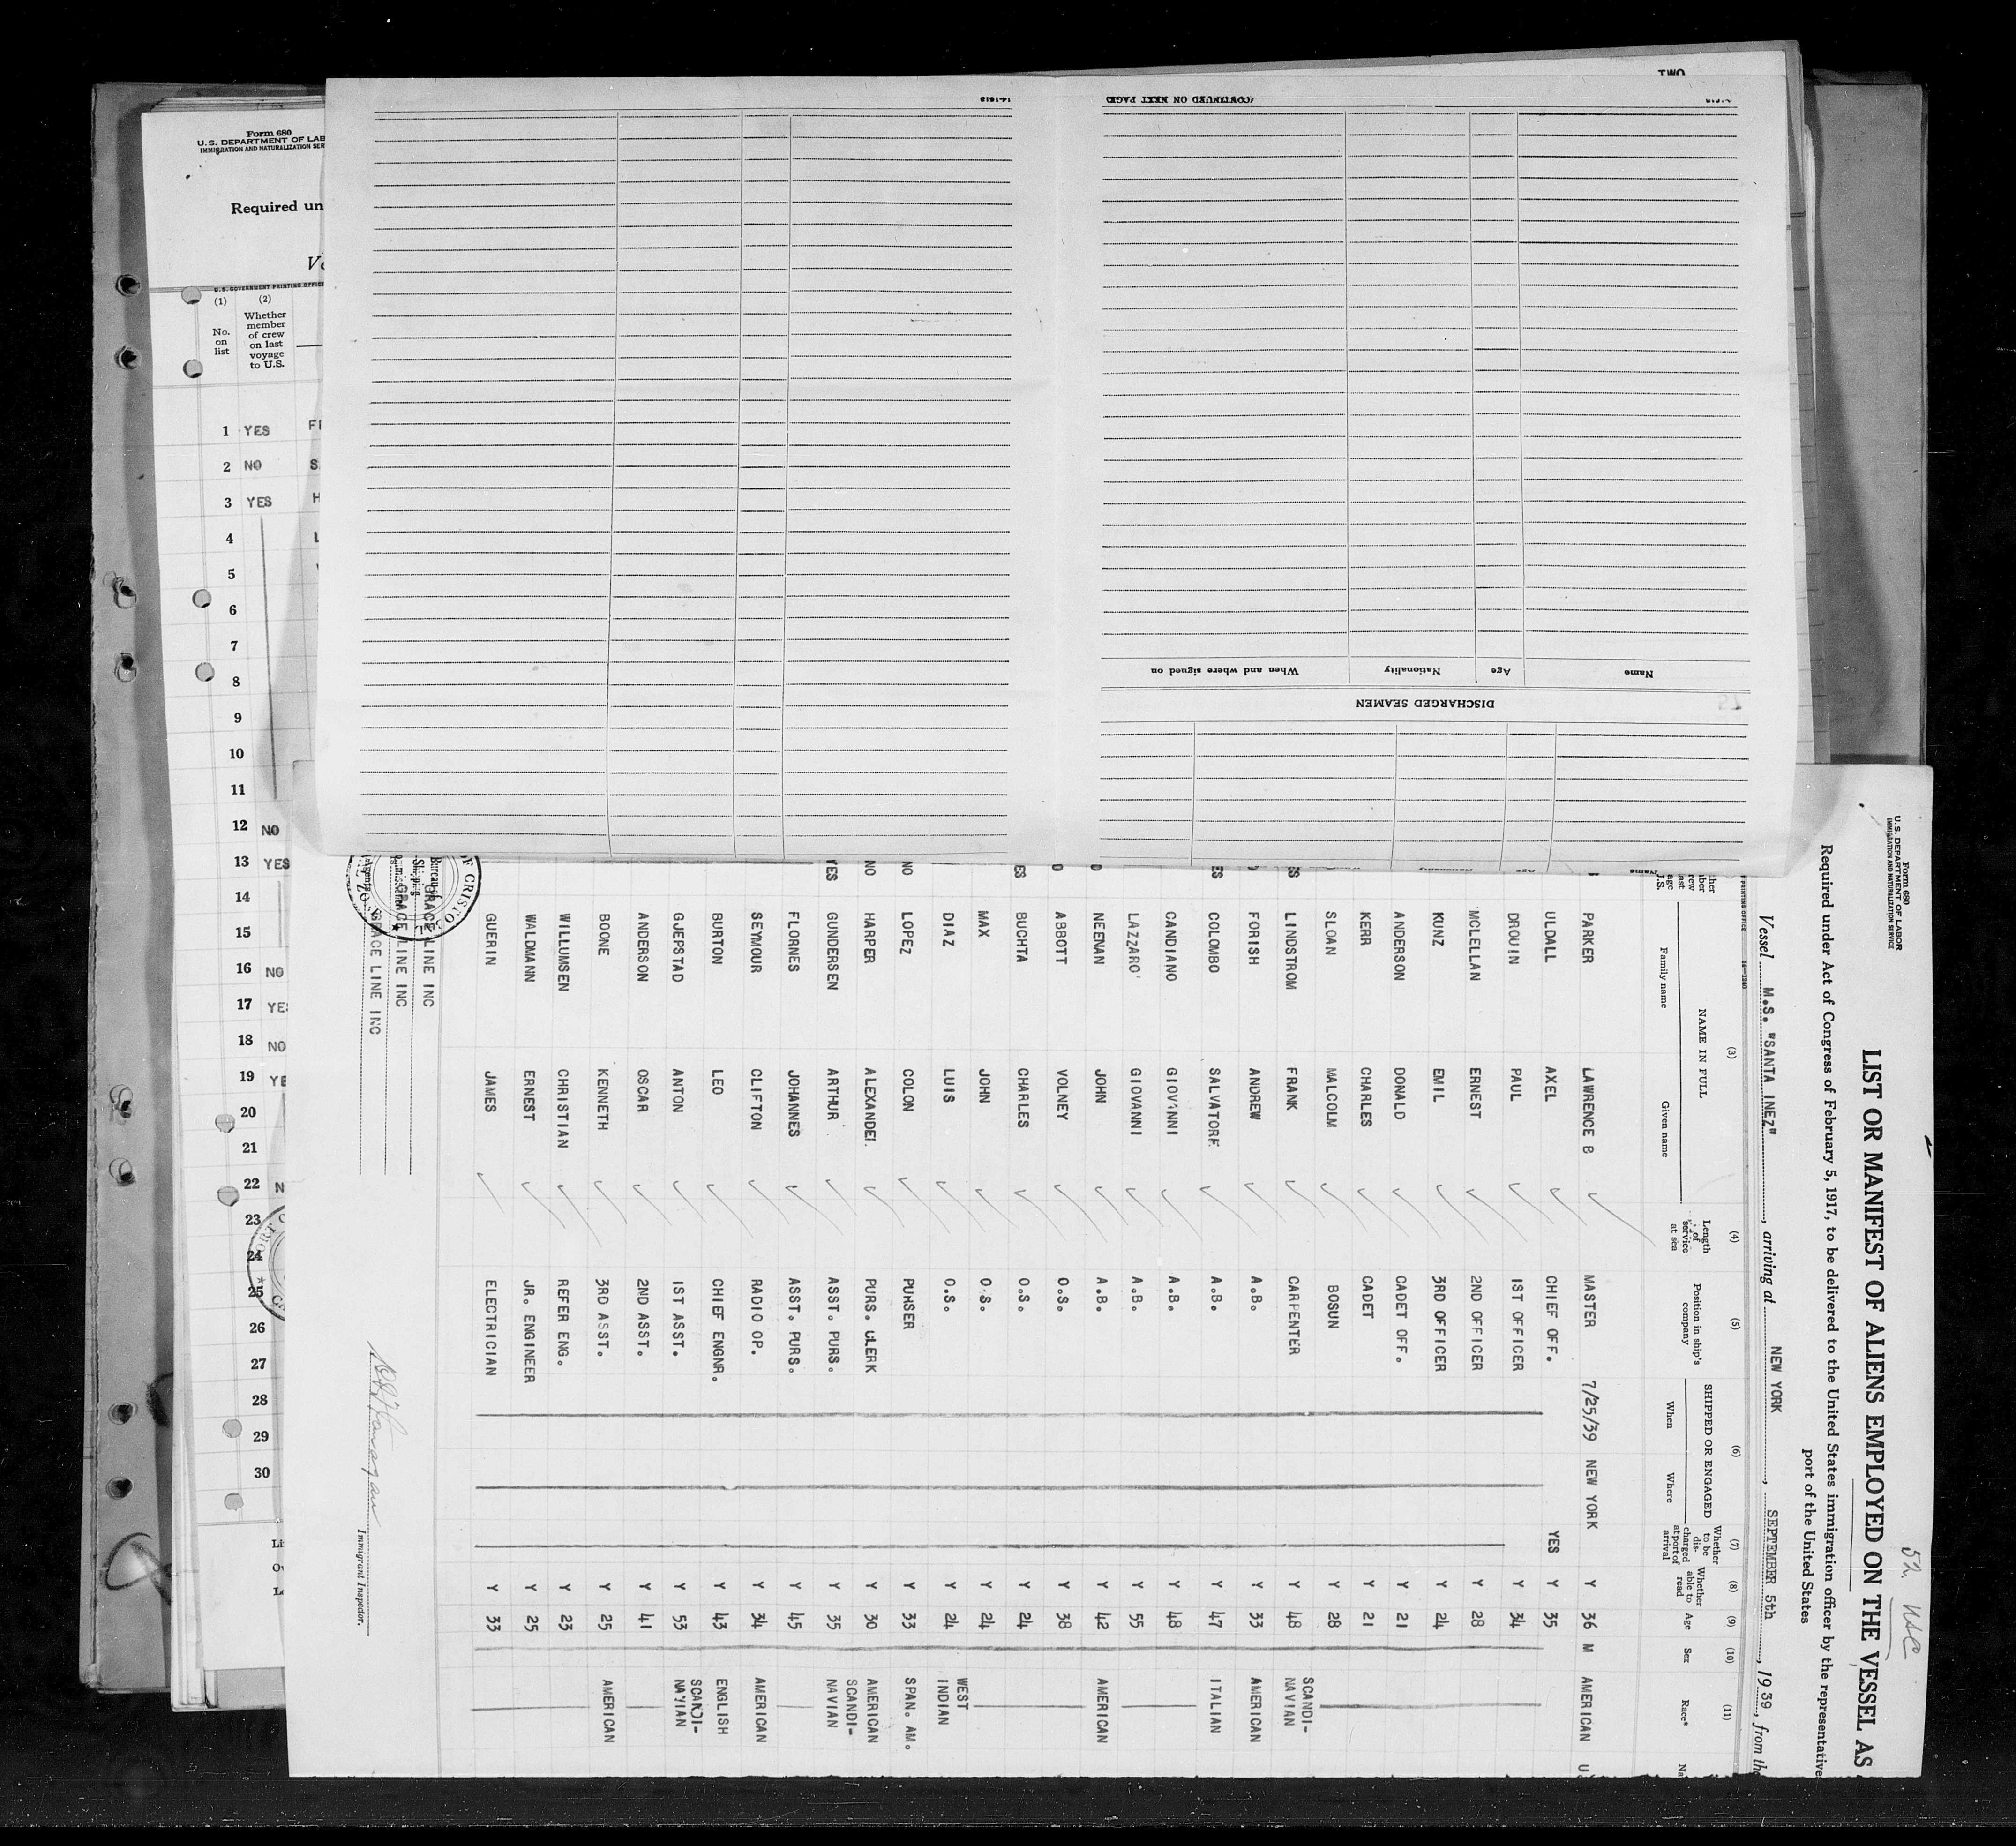 Form 680
U.S. DEPARTMENT OF LAB
IMMIGRATION AND NATURALIZATION SER
Required un
U.S. GOVERNMENT PRINTING OFFICE
(1) (2)
No. on list
Whether member of crew on last voyage to U.S.
1 YES
2 NO
3 YES
4
5
6
7
8
9
10
11
12 NO
13 YES
14
15
16 NO
17 YE
18 NO
19 YE
20
21
22 N
23
24
25
26
27
28
29
30
TWO
14-1618
(CONTINUED ON NEXT PAGE)
Name Age Nationality When and where signed on
DISCHARGED SEAMEN
Form 680
U.S. DEPARTMENT OF LABOR
IMMIGRATION AND NATURALIZATION SERVICE
52 USC
LIST OR MANIFEST OF ALIENS EMPLOYED ON THE VESSEL AS
Required under Act of Congress of February 5, 1917, to be delivered to the United States immigration officer by the representative
port of the United States
Vessel M.S. "SANTA INEZ", arriving at NEW YORK, SEPTEMBER 5th, 1939, from the
(3) (4) (5) (6) (7) (8) (9) (10) (11)
NAME IN FULL
Family name Given name
Length of service at sea
Position in ship's company
SHIPPED OR ENGAGED
When Where
Whether to be discharged at port of arrival
Whether able to read
Age
Sex
Race*
PARKER LAWRENCE B MASTER 7/25/39 NEW YORK Y 36 M AMERICAN U
ULDALL AXEL CHIEF OFF. YES Y 35
DROUIN PAUL 1ST OFFICER Y 34
MCLELLAN ERNEST 2ND OFFICER Y 28
KUNZ EMIL 3RD OFFICER Y 24
ANDERSON DONALD CADET OFF. Y 21
KERR CHARLES CADET Y 21
SLOAN MALCOLM BOSUN Y 28
LINDSTROM FRANK CARPENTER Y 48 SCANDI-NAVIAN
FORISH ANDREW A.B. Y 33 AMERICAN
ES COLOMBO SALVATORE A.B. Y 47 ITALIAN
CANDIANO GIOVANNI A.B. Y 48
LAZZARO GIOVANNI A.B. Y 55
NEENAN JOHN A.B. Y 42 AMERICAN
ABBOTT VOLNEY O.S. Y 38
ES BUCHTA CHARLES O.S. Y 24
MAX JOHN O.S. Y 24
DIAZ LUIS O.S. Y 24 WEST INDIAN
NO LOPEZ COLON PURSER Y 33 SPAN. AM.
NO HARPER ALEXANDER PURS. CLERK Y 30 AMERICAN
YES GUNDERSEN ARTHUR ASST. PURS. Y 35 SCANDI-NAVIAN
FLORNES JOHANNES ASST. PURS. Y 45
SEYMOUR CLIFTON RADIO OP. Y 34 AMERICAN
BURTON LEO CHIEF ENGNR. Y 43 ENGLISH
GJEPSTAD ANTON 1ST ASST. Y 53 SCANDI-NAVIAN
ANDERSON OSCAR 2ND ASST. Y 41
BOONE KENNETH 3RD ASST. Y 25 AMERICAN
WILLUMSEN CHRISTIAN REFER ENG. Y 23
WALDMANN ERNEST JR. ENGINEER Y 25
GUERIN JAMES ELECTRICIAN Y 33
GRACE LINE INC
GRACE LINE INC
GRACE LINE INC
Immigrant Inspector.